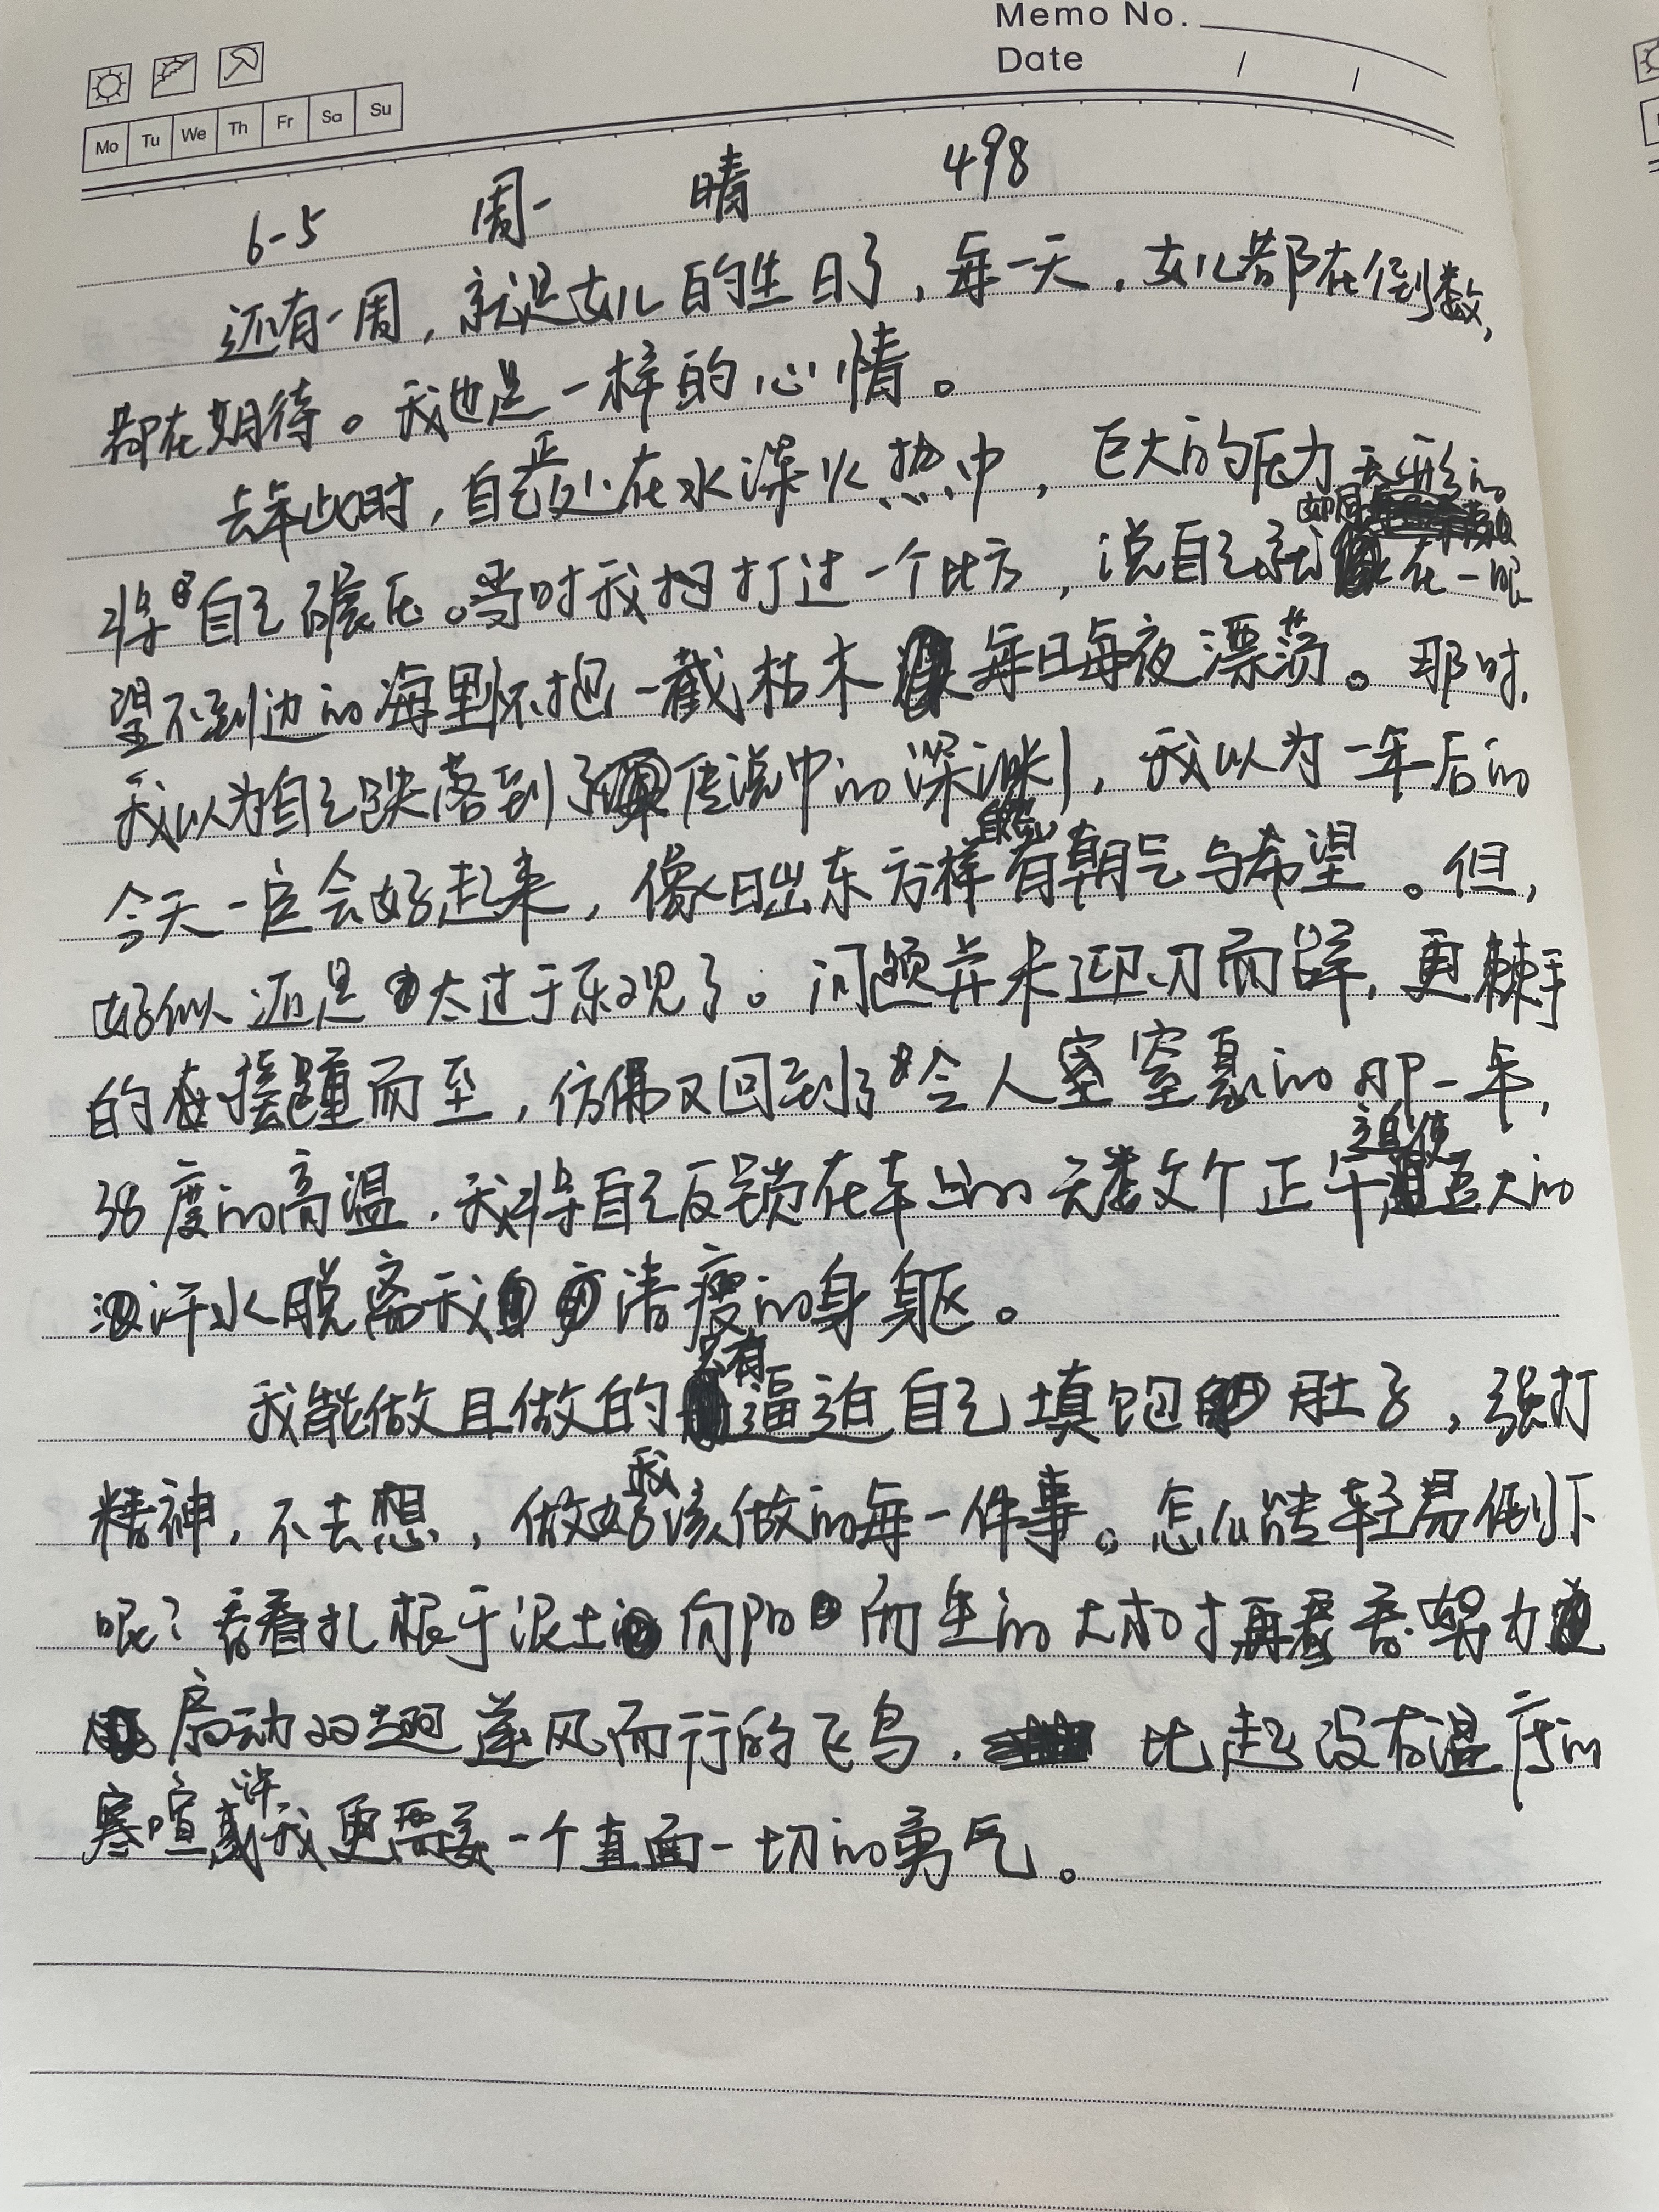 Memo No.
Date / /
Mo Tu We Th Fr Sa Su
6-5 周一 晴 498
还有一周，就是女儿的生日了，每一天，女儿都在倒数，
都在期待。我也是一样的心情。
去年此时，自己正处在水深火热中，巨大的压力无形的
将自己碾压。当时我打过一个比方，说自己就如同在一眼
望不到边的海里怀抱一截枯木每日每夜漂荡。那时，
我以为自己跌落到了传说中的深渊，我以为一年后的
今天一定会好起来，像日出东方样有朝气与希望。但，
好似还是太过于乐观了。问题并未迎刃而解，更棘手
的在接踵而至，仿佛又回到了令人窒息的那一年，
38度的高温，我将自己反锁在车上的无数个正午，迫使豆大的
汗水脱离我清瘦的身躯。
我能做且做的只有逼迫自己填饱肚子，强打
精神，不去想，做好我该做的每一件事。怎么能轻易倒下
呢？看看扎根于泥土向阳而生的大树，再看看努力
扇动双翅逆风而行的飞鸟，比起没有温度的
寒暄，或许我更需要一个直面一切的勇气。